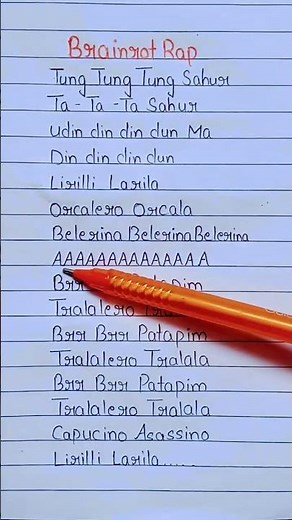 Brainrot Rap
Tung Tung Tung Sahur
Ta - Ta - Ta Sahur
Udin din din dun Ma
Din din din dun
Lirilli Larila
Orcalero Orcala
Belerina Belerina Belerina
AAAAAAAAAAAAA
Brr
Tralalero
Brr Brr Patapim
Tralalero Tralala
Brr Brr Patapim
Tralalero Tralala
Capucino Asassino
Lirilli Larila......